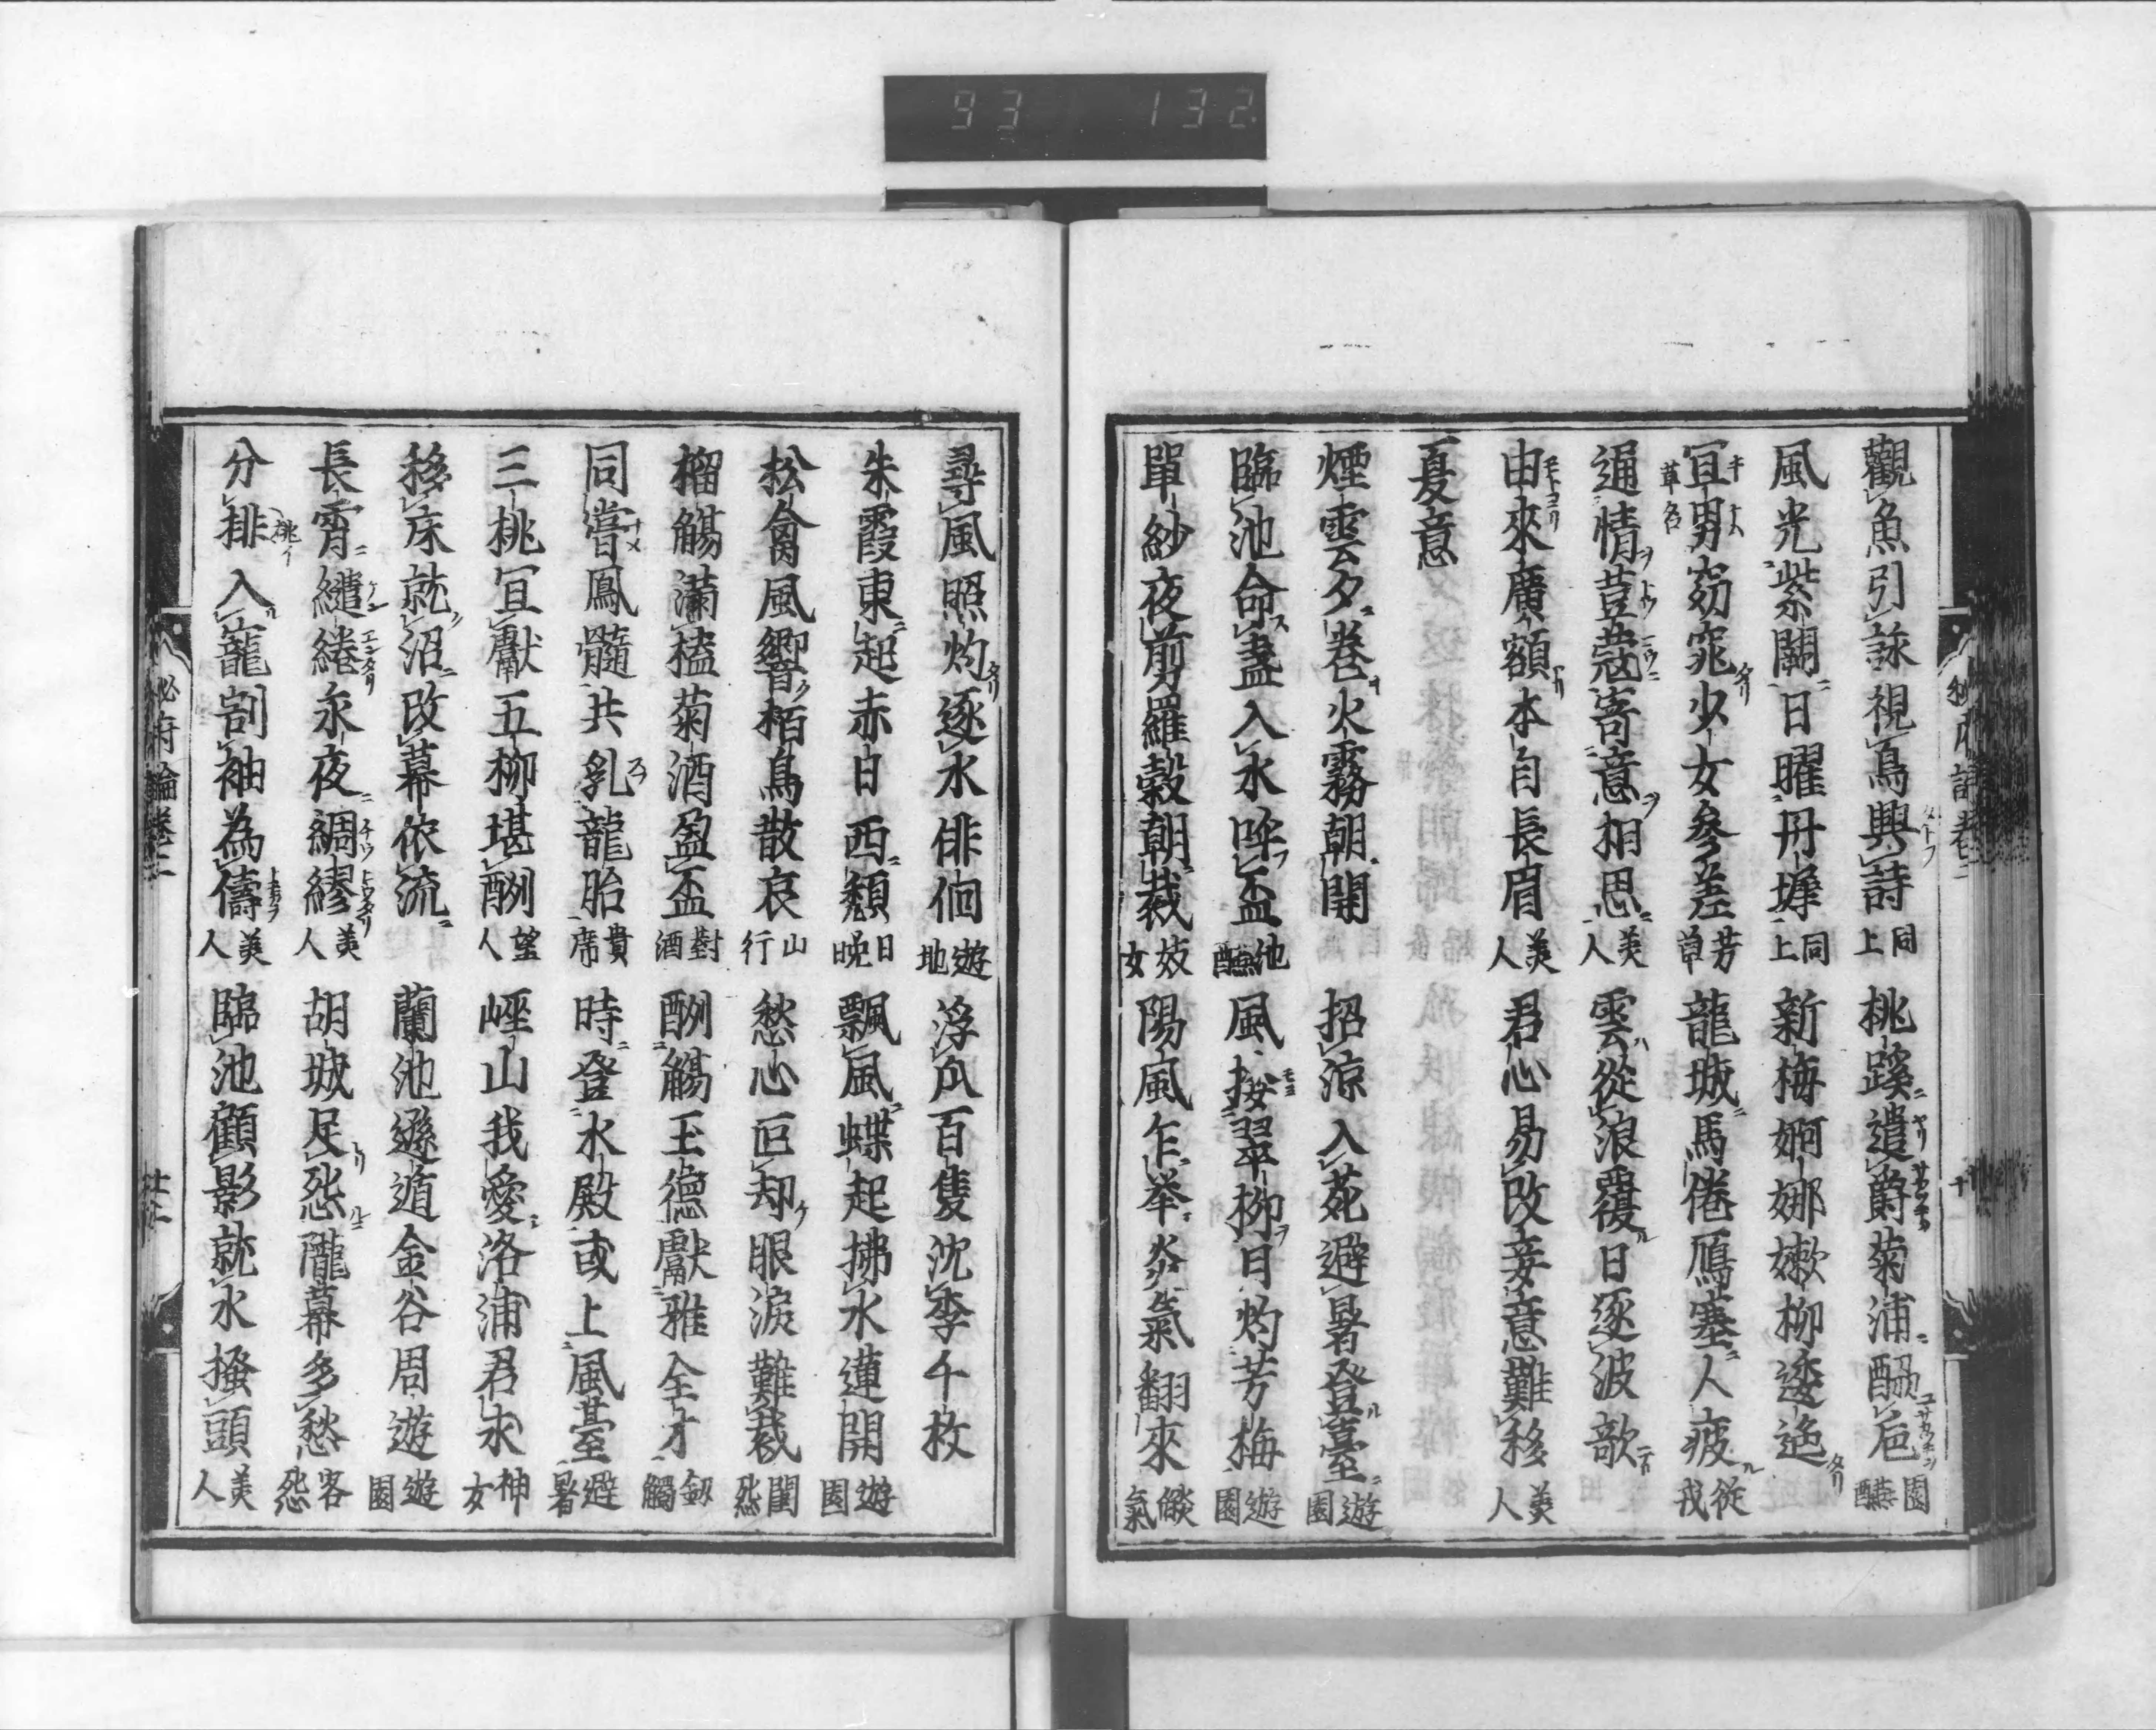 93 132
觀魚引詠視鳥興詩同上 桃蹊遣爵菊浦酌巵園醼
風光紫闕日曜丹墀同上 新梅婀娜嫩柳逶迤
宜男窈窕少女參差芳草 龍城馬倦鴈塞人疲從戎
通情荳蔻寄意相思美人 雲從浪覆日逐波歌
由來廣額本自長眉美人 君心易改妾意難移美人
夏意
煙雲夕卷火霧朝開 招涼入苑避暑登臺遊園
臨池命盞入水呼盃池醼 風按翠柳日灼芳梅遊園
單紗夜剪羅縠朝裁妓女 陽風乍举炎氣翻來燄氣
尋風照灼逐水俳佪遊地 浮瓜百隻沈李千枚
朱霞東起赤日西頽日晚 飄風蝶起拂水蓮開遊園
松禽風響栢鳥散哀山行 愁心叵却眼淚難裁閨怨
榴觴滿榼菊酒盈盃對酒 酬觴玉德獻雅全才
同嘗鳳髓共乳龍胎貴席 時登水殿或上風臺避暑
三桃宜獻五柳堪酬望人 峌山我愛洛浦君求神女
移床就沼改幕依流 蘭池遜遁金谷周遊遊園
長宵繾綣永夜綢繆美人 胡城足怨隴幕多愁客怨
分排入寵割袖為儔美人 臨池顧影就水搔頭美人